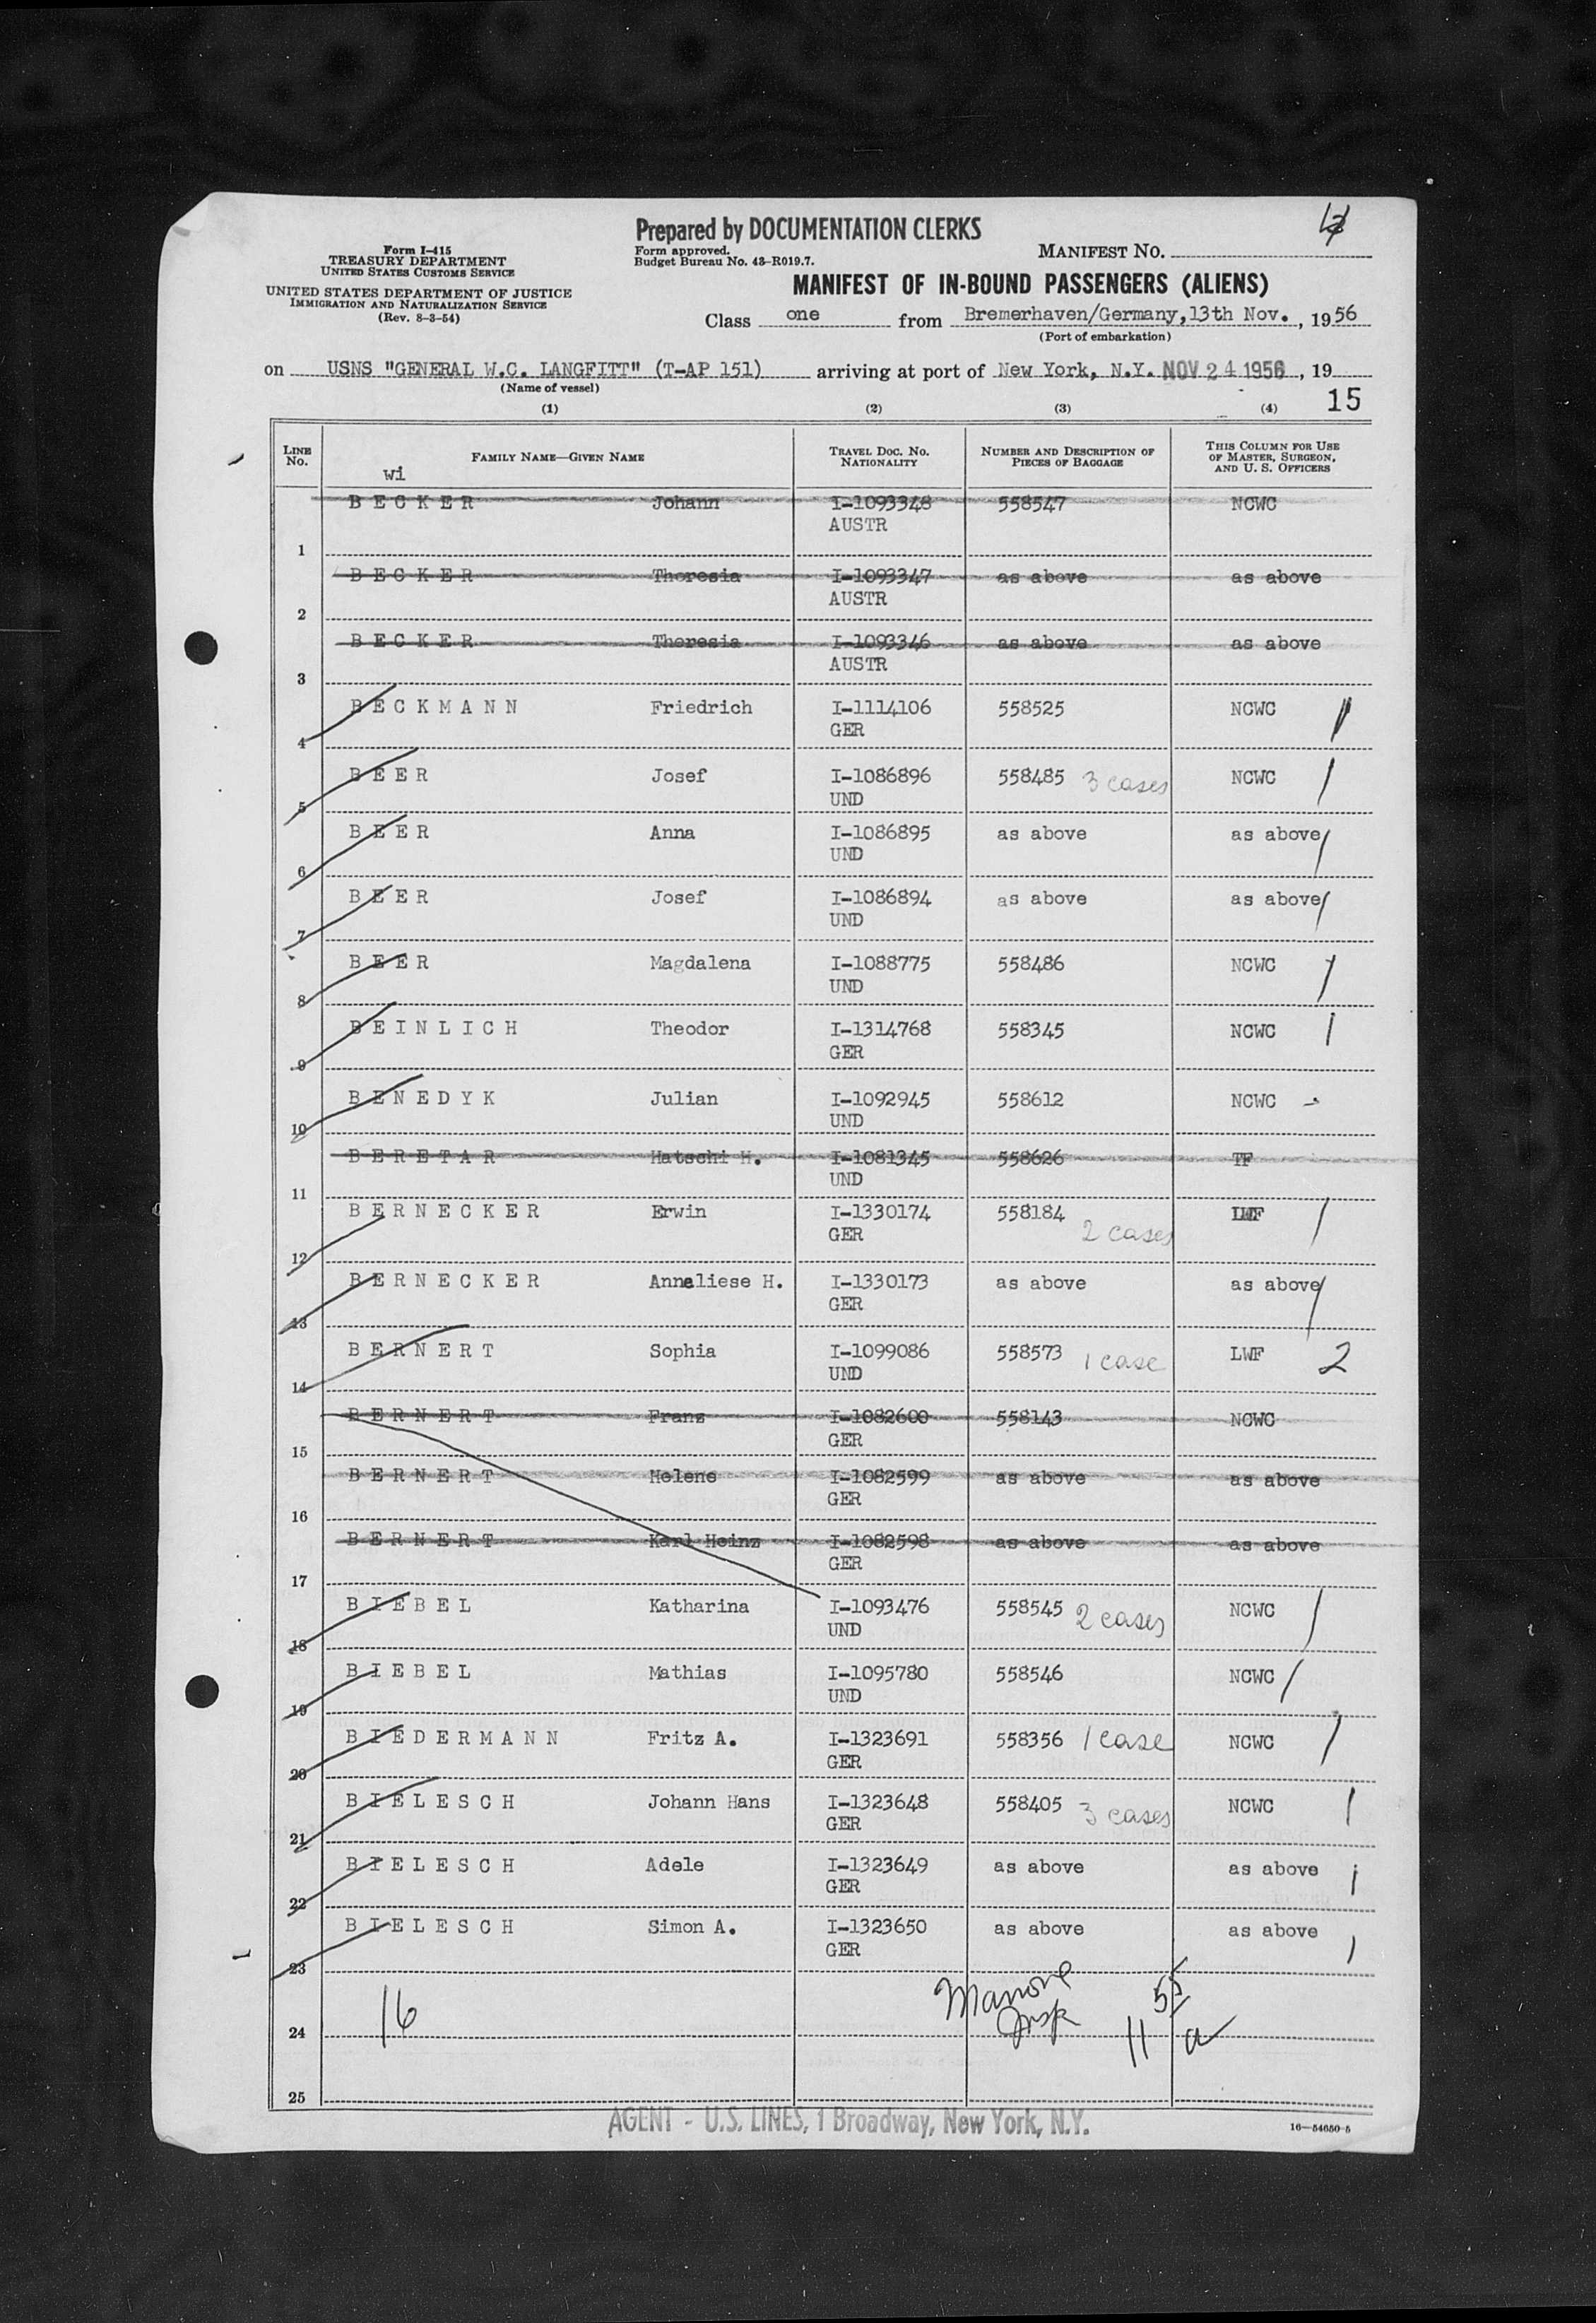 Prepared by DOCUMENTATION CLERKS
Form I-415
TREASURY DEPARTMENT
UNITED STATES CUSTOMS SERVICE
UNITED STATES DEPARTMENT OF JUSTICE
IMMIGRATION AND NATURALIZATION SERVICE
(Rev. 8-3-54)
Form approved.
Budget Bureau No. 43-R019.7.
MANIFEST NO.
MANIFEST OF IN-BOUND PASSENGERS (ALIENS)
Class one from Bremerhaven/Germany, 13th Nov. , 1956
(Port of embarkation)
on USNS "GENERAL W.C. LANGFITT" (T-AP 151) arriving at port of New York, N.Y. NOV 24 1956 , 19
(Name of vessel)
(1) (2) (3) (4) 15
LINE No. FAMILY NAME—GIVEN NAME TRAVEL DOC. NO. NATIONALITY NUMBER AND DESCRIPTION OF PIECES OF BAGGAGE THIS COLUMN FOR USE OF MASTER, SURGEON, AND U. S. OFFICERS
wi
BECKER Johann I-1093348 558547 NCWC
AUSTR
1
BECKER Theresia I-1093347 as above as above
AUSTR
2
BECKER Theresia I-1093346 as above as above
AUSTR
3
BECKMANN Friedrich I-1114106 558525 NCWC
GER
4
BEER Josef I-1086896 558485 3 cases NCWC
UND
5
BEER Anna I-1086895 as above as above
UND
6
BEER Josef I-1086894 as above as above
UND
7
BEER Magdalena I-1088775 558486 NCWC
UND
8
BEINLICH Theodor I-1314768 558345 NCWC
GER
9
BENEDYK Julian I-1092945 558612 NCWC
UND
10
BERETAR Hatschi H. I-1081345 558626 TF
UND
11
BERNECKER Erwin I-1330174 558184 2 cases LWF
GER
12
BERNECKER Anneliese H. I-1330173 as above as above
GER
13
BERNERT Sophia I-1099086 558573 1 case LWF 2
UND
14
BERNERT Franz I-1082600 558143 NCWC
GER
15
BERNERT Helene I-1082599 as above as above
GER
16
BERNERT Karl Heinz I-1082598 as above as above
GER
17
BIEBEL Katharina I-1093476 558545 2 cases NCWC
UND
18
BIEBEL Mathias I-1095780 558546 NCWC
UND
19
BIEDERMANN Fritz A. I-1323691 558356 1 case NCWC
GER
20
BIELESCH Johann Hans I-1323648 558405 3 cases NCWC
GER
21
BIELESCH Adele I-1323649 as above as above
GER
22
BIELESCH Simon A. I-1323650 as above as above
GER
23
16 Insp 11 55 a
24
25
AGENT - U.S. LINES, 1 Broadway, New York, N.Y.
16—54650-5